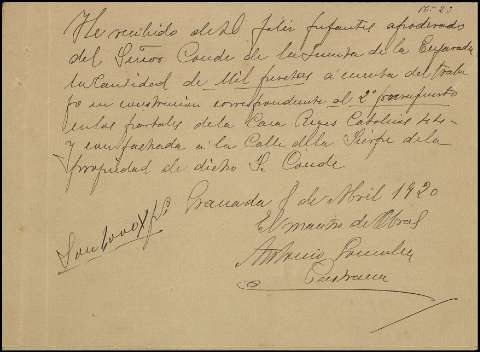 He recibido de D. Felix Infantes apoderado
del Señor Conde de la Puente de la Enjarada
la Cantidad de Mil pesetas a cuenta del traba
jo en construcion correspondiente al 2º presupuesto
en los portales de la Casa Reyes Catolicos
y con fachada a la Calle de la Sierpe de la
propiedad de dicho Sr. Conde
Granada 8 de Abril 1920
El maestro de Obras
Son 1000 Pts
Antonio Gonzalez